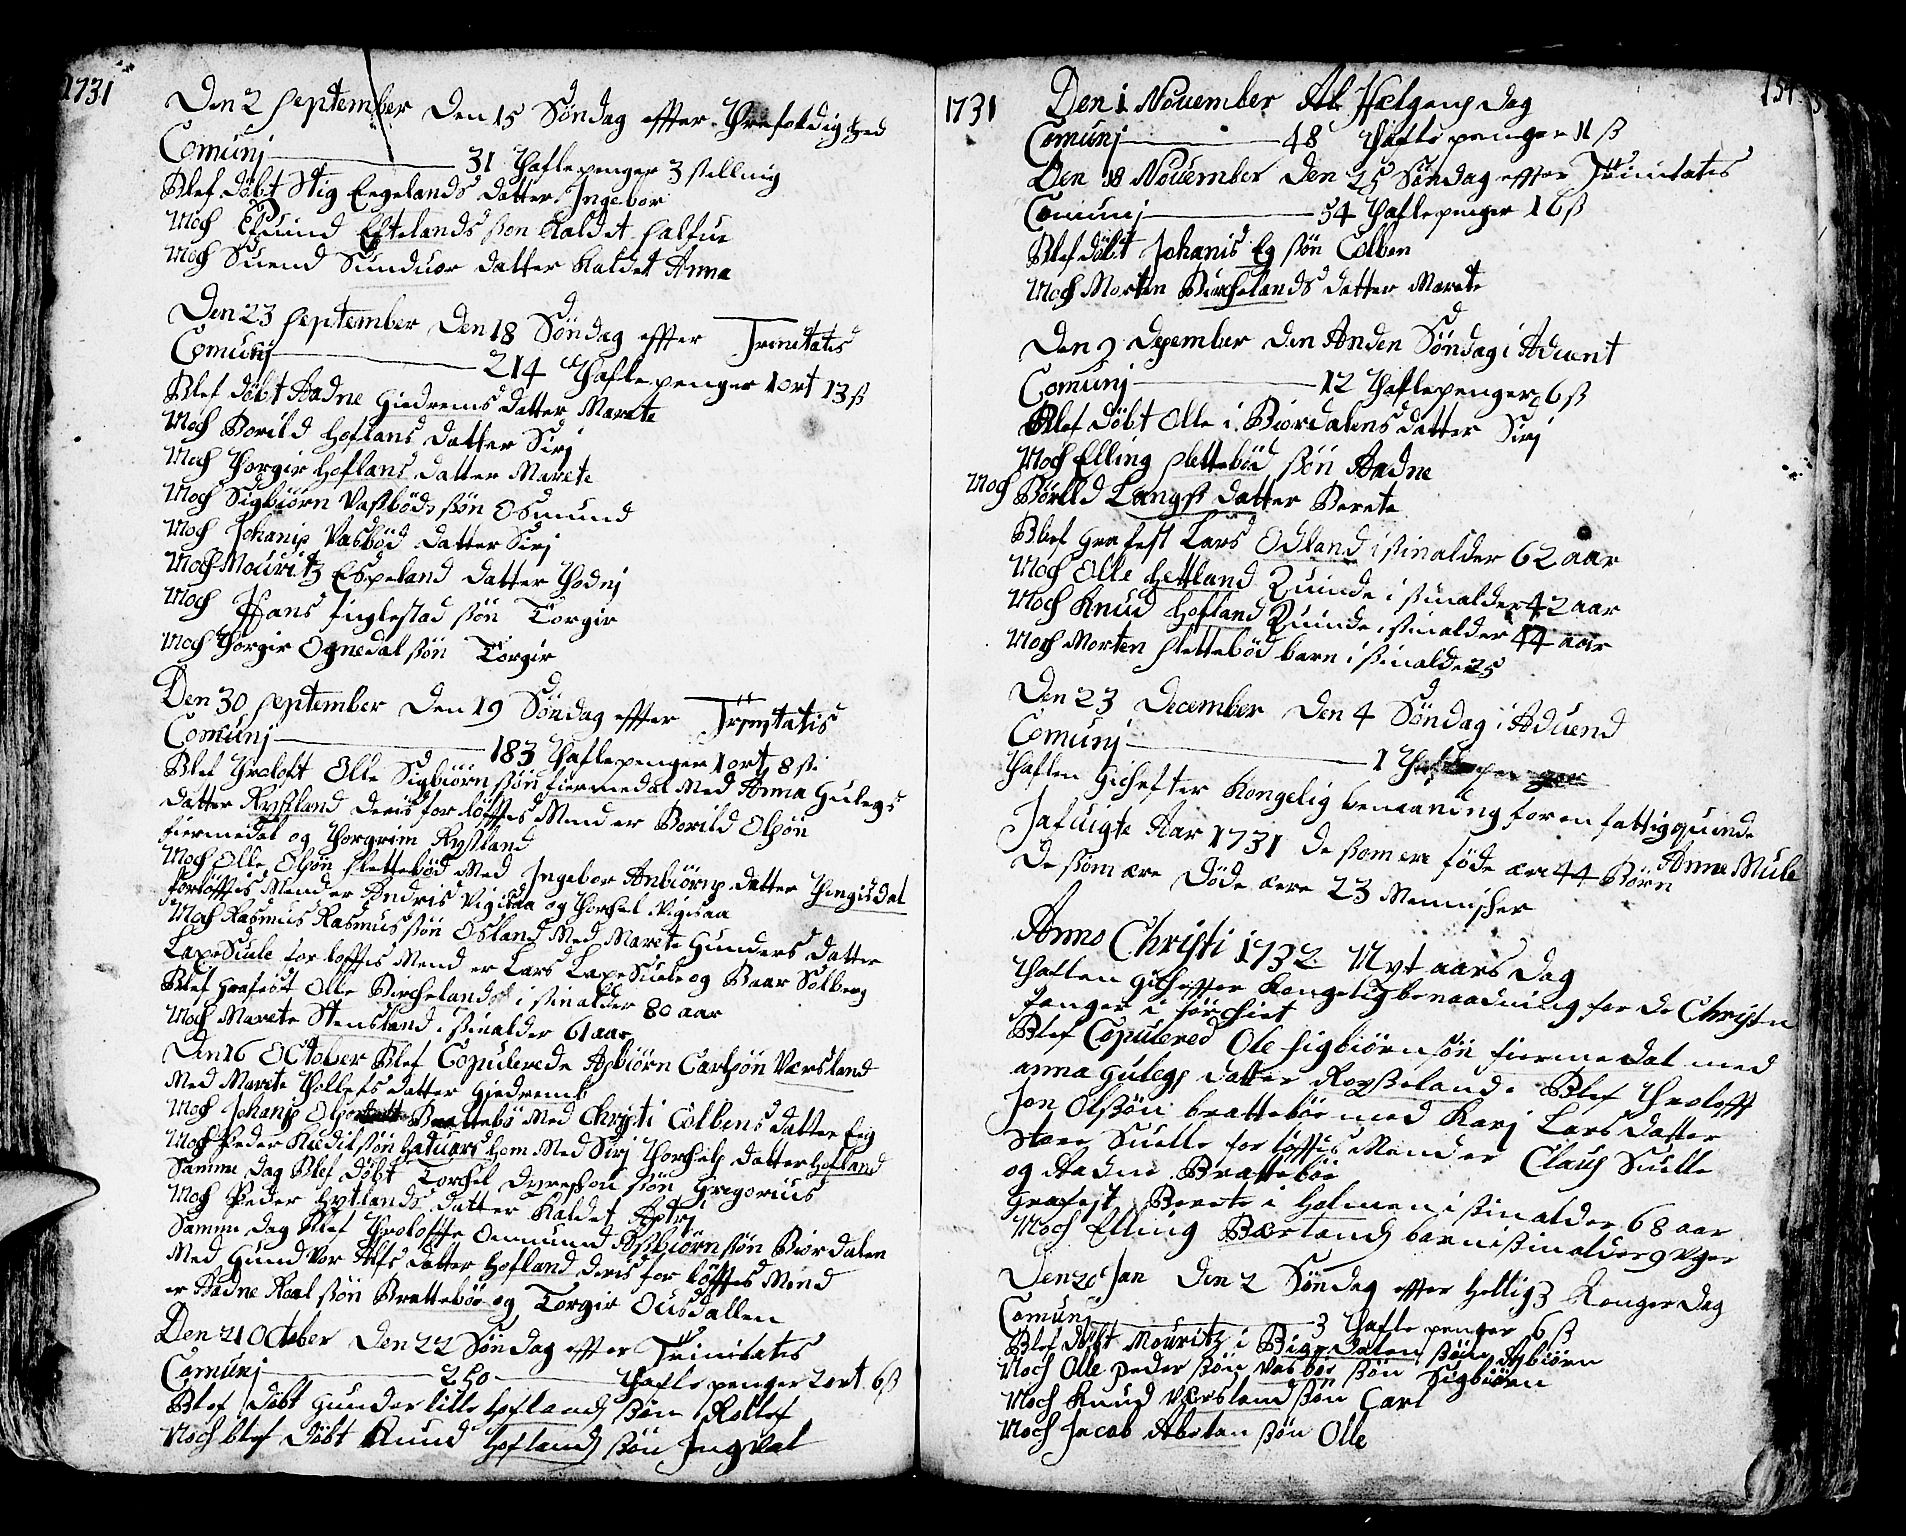 1731
Den 2 September Den 15 Søndag effter Threfoldighed
Comunj 31 Thaflepenger 3 skilling
Blef døbt Stig Eegelands datter Ingebor
Noch Eftelands søn kaldet
Noch Suend Sunduor datter kaldet Anna
Den 23 September Den 18 Søndag effter Trinitatis
Comunj 214 Thaflepenger 1 ort 13 ß
Blef døbt Aadne Giedrems datter Marete
Noch Borild Hoflans datter Sirj
Noch Thorgir Hoflans datter Marete
Noch Sigbiørn Vasbøds søn Osmund
Noch Johanis Vasbød datter Sirj
Noch Mouritz Espeland datter Thodnj
Noch Hans Inglestad søn Torgir
Noch Thorgir Ognedal søn Torgir
Den 30 September Den 19 Søndag effter Trinitatis
Comunj 183 Thaflepenger 1 ort 8 ß
Blef Troloft Olle Sigbiørnsøn fiermedal Med Anna Gulegs
datter Rysland deris forløfftes Mend er Borild Olsøn
fiermedal og Thorgrim Rysland
Noch Olle Olsøn slettebød Med Ingebor Anbiørns datter Thengisdal
forløfftis Mend er Andris Vigisaa og Thorkel Vigisaa
Noch Rasmus Rasmussøn Osland Med Marete Gunders datter
LaxeSuele forløfftis Mend er Lars LaxeSuele og Baar Solberg
Blef Grafest Olle Bircheland i sin alder 80 aar
Noch Marete Stensland i sin alder 61 aar
Den 16 October Blef Copulerede Asbiørn Carlsøn Værsland
Med Marete Thollefs datter Giedrems
Noch Johanis Brattebø Med Christi Colbens datter Eeg
Noch Peder Kiedilsøn Hatuars hom Med Sirj Thorkels datter Hofland
Samme dag Blef døbt Torchel søn Gregorius
Noch Peder Hytlands datter kaldet
Samme dag Blef Troloffte Ommund Asbiørnsøn Biordalen
Med Gundvor Alfs datter Hofland deris forløfftes Mend
er Aadne Roalsøn Brattebøe og Torgir Ousdallen
Den 21 October Den 22 Søndag effter Trinitatis
Comunj 250 Thaflepenger 2 ort 6 ß
Blef døbt Gunder lille Hoflands søn Rollef
Noch blef døbt Knud Hoflands søn Ingval
1731
Den 1 November Al Helgens Dag
Comunj 48 Thaflepenger 11 ß
Den 18 November Den 25 Søndag effter Trinitatis
Comunj 54 Thaflepenger 16 ß
Blef døbt Johanis Eg søn Colben
Noch Morten Birchelands datter Marete
Den 9 December den Anden Søndag i Aduent
Comunj 12 Thaflepenger 6 ß
Blef døbt Olle i Biordalens datter Sirj
Noch Elling slettebød søn Aadne
Noch Børild Langs datter Berete
Blef Grafest Lars Odland i sin alder 62 aar
Noch Olle Hetland Quinde i sin alder 42 aar
Noch Knud Hofland Quinde i sin alder 44 aar
Noch Morten slettebød barn i sin alder 25
Den 23 December Den 4 Søndag i Aduend
Comunj 1 Thaflepenger
Thaflen Gich efter Kongelig benaaning for en fattig quinde
Anne Mule
Jafuigte Aar 1731 De som ere føde ere 44 Børn
De som ere Døde ere 23 Mennisker
Anno Christi 1732 Nyt aars Dag
Thaflen gich effter Kongelig benaadning for de Christen
fanger i Tørchiet
Blef Copulered Ole Sigbiørnsøn fiermedal med
anna Gulegs datter Rysseland. Blef Trolofft
Jon Olsøn brattebøe med Karj Lars datter
Store Suelle forløfftis Mend er Claus Suelle
og Aadne Brattebøe
Grafest Berete i Holmen i sin alder 68 aar
Noch Elling Bærlands barn i sin alder 9 Uger
Den 20 Jan Den 2 Søndag effter Hellig 3 Konger Dag
Comunj 3 Thaflepenger 6 ß
Blef døbt Mouritz i søn Asbiørn
Noch Olle Pedersøn Vasbøe søn Sigbiørn
Noch Knud Værsland søn Carl
Noch Jacob Abelan søn Olle